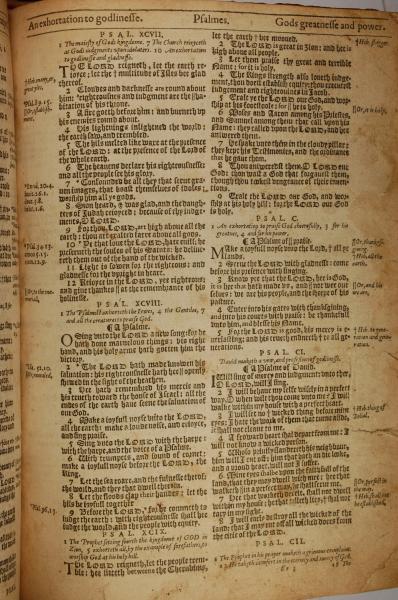 An exhortation to godlinesse.
Psalmes.
Gods greatnesse and power.
PSAL. XCVII.
1 The maiesty of Gods kingdome. 7 The Church reioyceth
at Gods iudgments vpon idolaters. 10 An exhortation
to godlinesse and gladnesse.
THe LORD reigneth, let the earth re-
ioyce: let the multitude of Isles bee glad
thereof.
2 Clouds and darknesse are round about
him: righteousnesse and iudgement are the
of his throne.
3 A fire goeth before him: and burneth vp
his enemies round about.
4 His lightnings inlightned the world:
the earth saw, and trembled.
5 The hils melted like waxe at the presence
of the LORD: at the presence of the Lord of
the whole earth.
6 The heauens declare his righteousnesse:
and all the people see his glory.
7 Confounded be all they that serue gra-
uen images, that boast themselues of idoles:
worship him all ye gods.
8 Sion heard, & was glad, and the daugh-
ters of Iudah reioyced: because of thy iudge-
ments, O LORD.
9 For thou, LORD, art high aboue all the
earth: thou art exalted farre aboue all gods.
10 Ye that loue the LORD, hate euill; he
preserueth the soules of his Saints: he deliue-
reth them out of the hand of the wicked.
11 Light is sowen for the righteous: and
gladnesse for the vpright in heart.
12 Reioyce in the LORD, yee righteous:
and giue thankes at the remembrance of his
holinesse.
PSAL. XCVIII.
1 The Psalmist exhorteth the Iewes, 4 the Gentiles, 7
and all the creatures to praise God.
¶ A Psalme.
O Sing vnto the LORD a new song, for he
hath done marueilous things: his right
hand, and his holy arme hath gotten him the
victory.
2 The LORD hath made knowen his
saluation: his righteousnesse hath he openly
shewed in the sight of the heathen.
3 Hee hath remembred his mercie and
his trueth toward the house of Israel: all the
ends of the earth haue seene the saluation of
our God.
4 Make a ioyfull noyse vnto the LORD,
all the earth: make a loud noise, and reioyce,
and sing praise.
5 Sing vnto the LORD with the harpe:
with the harpe, and the voice of a Psalme.
6 With trumpets, and sound of cornet:
make a ioyfull noyse before the LORD, the
King.
7 Let the sea roare, and the fulnesse there-
of: the world, and they that dwell therein.
8 Let the floods clap their hands: let the
hils be ioyfull together
9 Before the LORD, for he commeth to
iudge the earth: with righteousnesse shall hee
iudge the world, and the people with equity.
PSAL. XCIX.
1 The Prophet setting foorth the kingdome of GOD in
Zion, 5 exhorteth all, by the example of forefathers, to
worship God at his holy hill.
THe LORD reigneth, let the people trem-
ble: hee sitteth betweene the Cherubims,
let the earth be mooued.
2 The LORD is great in Zion: and he is
high aboue all people.
3 Let them praise thy great and terrible
Name: for it is holy.
4 The Kings strength also loueth iudge-
ment, thou doest establish equity: thou executest
iudgement and righteousnesse in Iacob.
5 Exalt ye the LORD our God, and wor-
ship at his footstoole: for he is holy.
6 Moses and Aaron among his Priests,
and Samuel among them that call vpon his
Name: they called vpon the LORD, and hee
answered them.
7 He spake vnto them in the cloudy pillar:
they kept his Testimonies, and the ordinance
that he gaue them.
8 Thou answeredst them, O LORD our
God: thou wast a God that forgauest them,
though thou tookest vengeance of their inuen-
tions.
9 Exalt the LORD our God, and wor-
ship at his holy hill: for the LORD our God
is holy.
PSAL. C.
1 An exhortation to praise God cheerefully, 3 for his
greatnes, 4 and for his power.
¶ A Psalme of praise.
MAke a ioyfull noyse vnto the Lord, all ye
lands.
2 Serue the LORD with gladnesse: come
before his presence with singing.
3 Know yee that the LORD, hee is God,
it is he that hath made vs, and not wee our
selues: we are his people, and the sheepe of his
pasture.
4 Enter into his gates with thankesgiuing,
and into his courts with praise: be thankefull
vnto him, and blesse his Name.
5 For the LORD is good, his mercy is e-
uerlasting: and his trueth endureth to all ge-
nerations.
PSAL. CI.
Dauid maketh a vow, and profession of godlinesse.
¶ A Psalme of Dauid.
I Will sing of mercy and iudgement: vnto thee,
O LORD, will I sing.
2 I will behaue my selfe wisely in a perfect
way, O when wilt thou come vnto me? I will
walke within my house with a perfect heart.
3 I will set no wicked thing before mine
eyes: I hate the worke of them that turne aside,
it shall not cleaue to me.
4 A froward heart shall depart from me: I
will not know a wicked person.
5 Whoso priuily slandereth his neighbour,
him will I cut off: him that hath an hie looke,
and a proud heart, will not I suffer.
6 Mine eyes shalbe vpon the faithfull of the
land, that they may dwell with me: hee that
walketh in a perfect way, he shall serue me.
7 He that worketh deceite, shall not dwell
within my house: he that telleth lyes shall not
tarry in my sight.
8 I will early destroy all the wicked of the
land: that I may cut off all wicked doers from
the citie of the LORD.
PSAL. CII.
1 The Prophet in his prayer maketh a grieuous complaint.